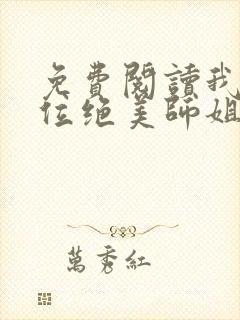 免費閱讀我
位绝美師姐
萬秀紅